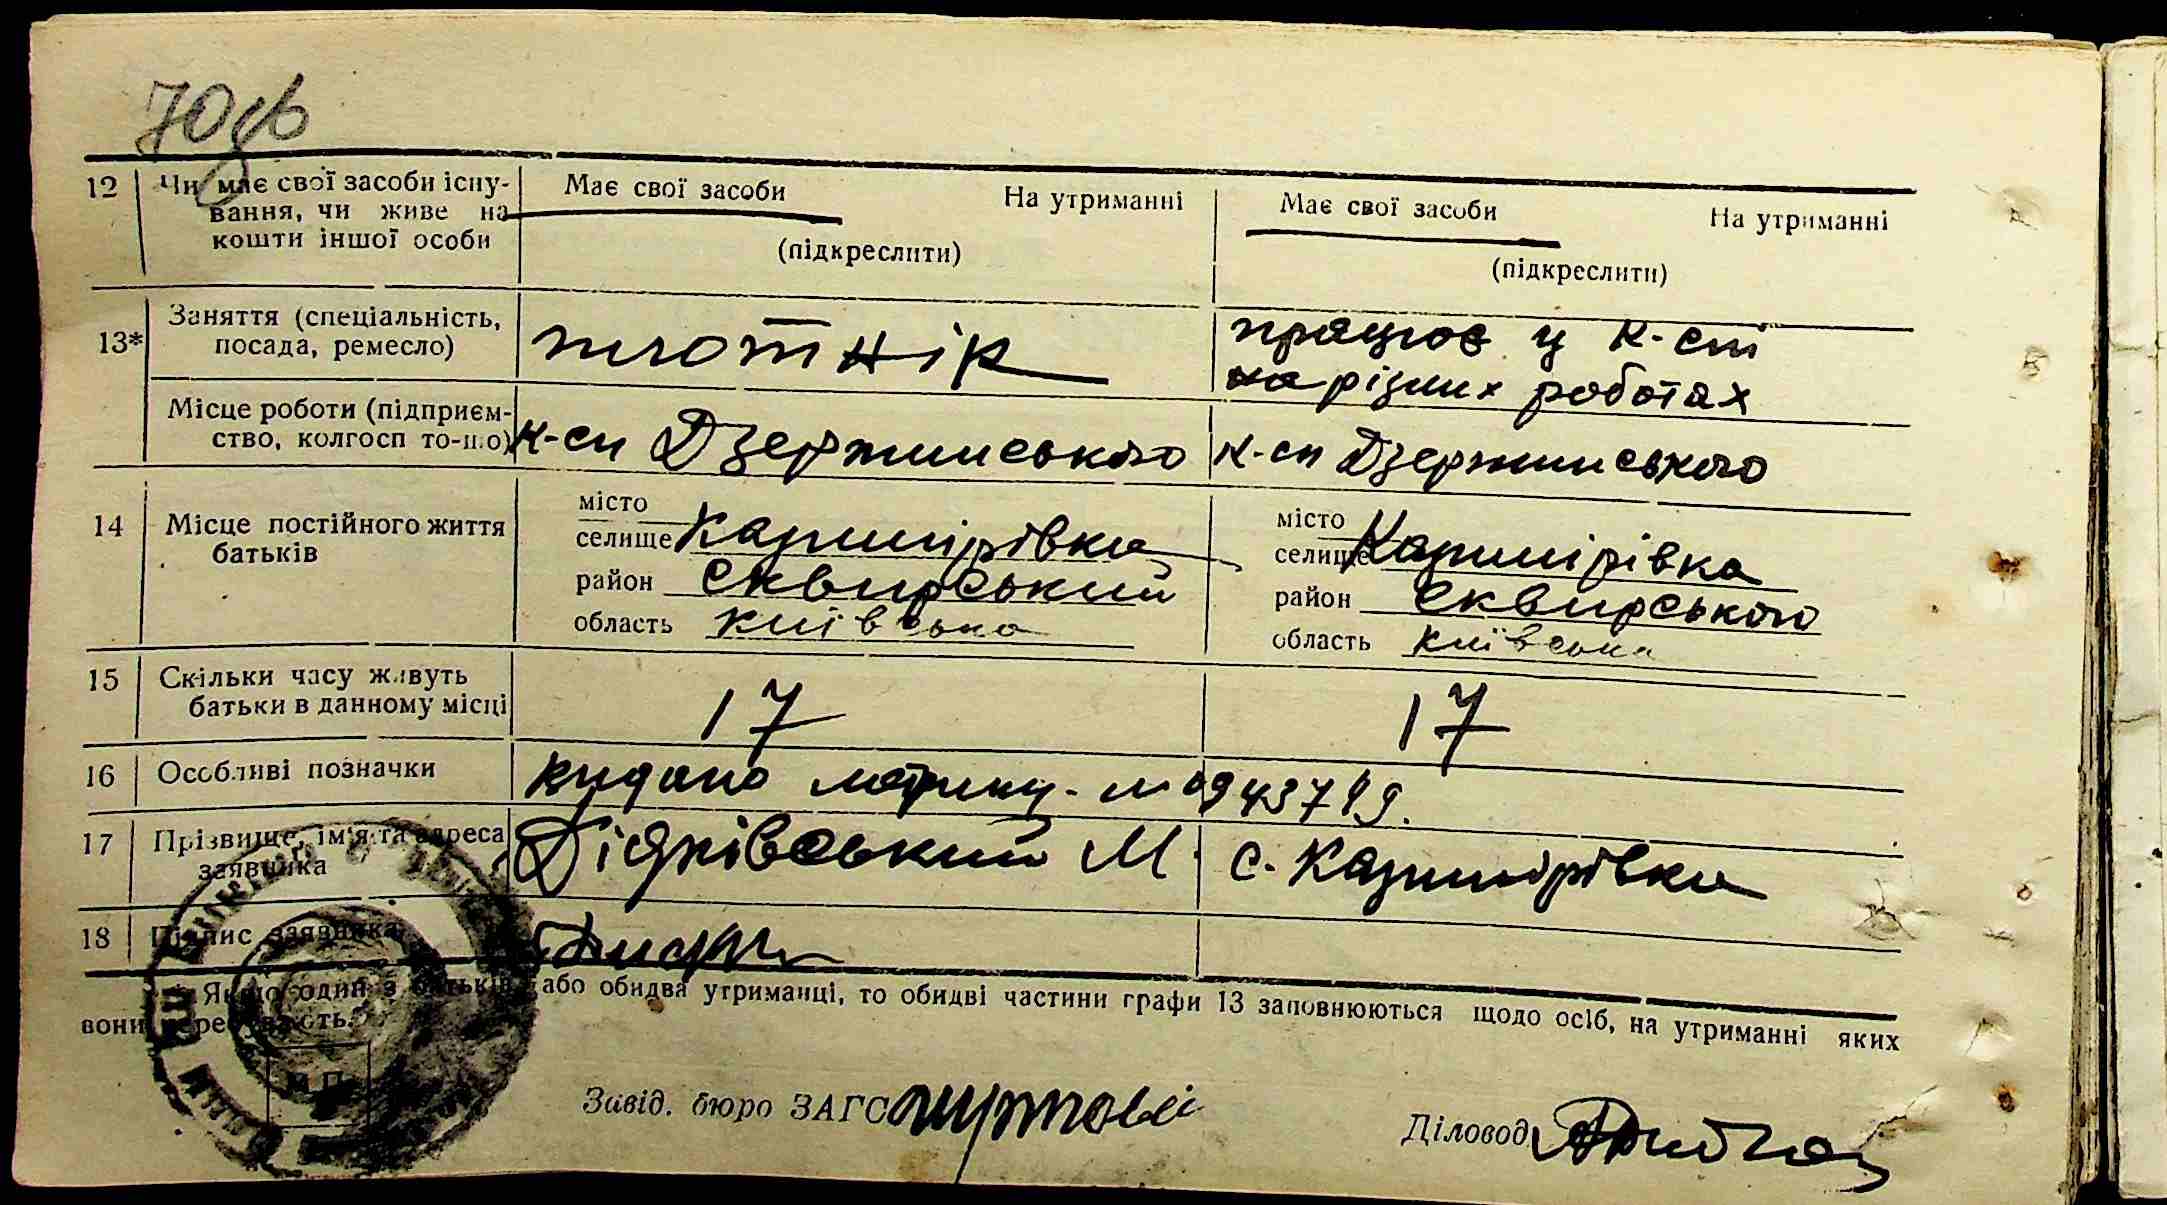 70 зв
12 Чи має свої засоби існу-
вання, чи живе на
кошти іншої особи
Має свої засоби На утриманні
(підкреслити)
Має свої засоби На утриманні
(підкреслити)
13* Заняття (спеціальність,
посада, ремесло)
плотнік
працює у к-сті
на різних роботах
Місце роботи (підприєм-
ство, колгосп то-що)
к-сп Дзержинського
к-сп Дзержинського
14 Місце постійного життя
батьків
місто
селище Казимірівка
район Сквирський
область Київська
місто
селище Казимірівка
район Сквирського
область Київська
15 Скільки часу живуть
батьки в данному місці
17
17
16 Особливі позначки
видано метрику
17 Прізвище, ім'я та адреса
заявника
М. с. Казимірівка
18 Підпис заявника
* Якщо один з батьків, або обидва утриманці, то обидві частини графи 13 заповнюються щодо осіб, на утриманні яких
вони перебувають.
М.П.
Завід. бюро ЗАГС
Діловод